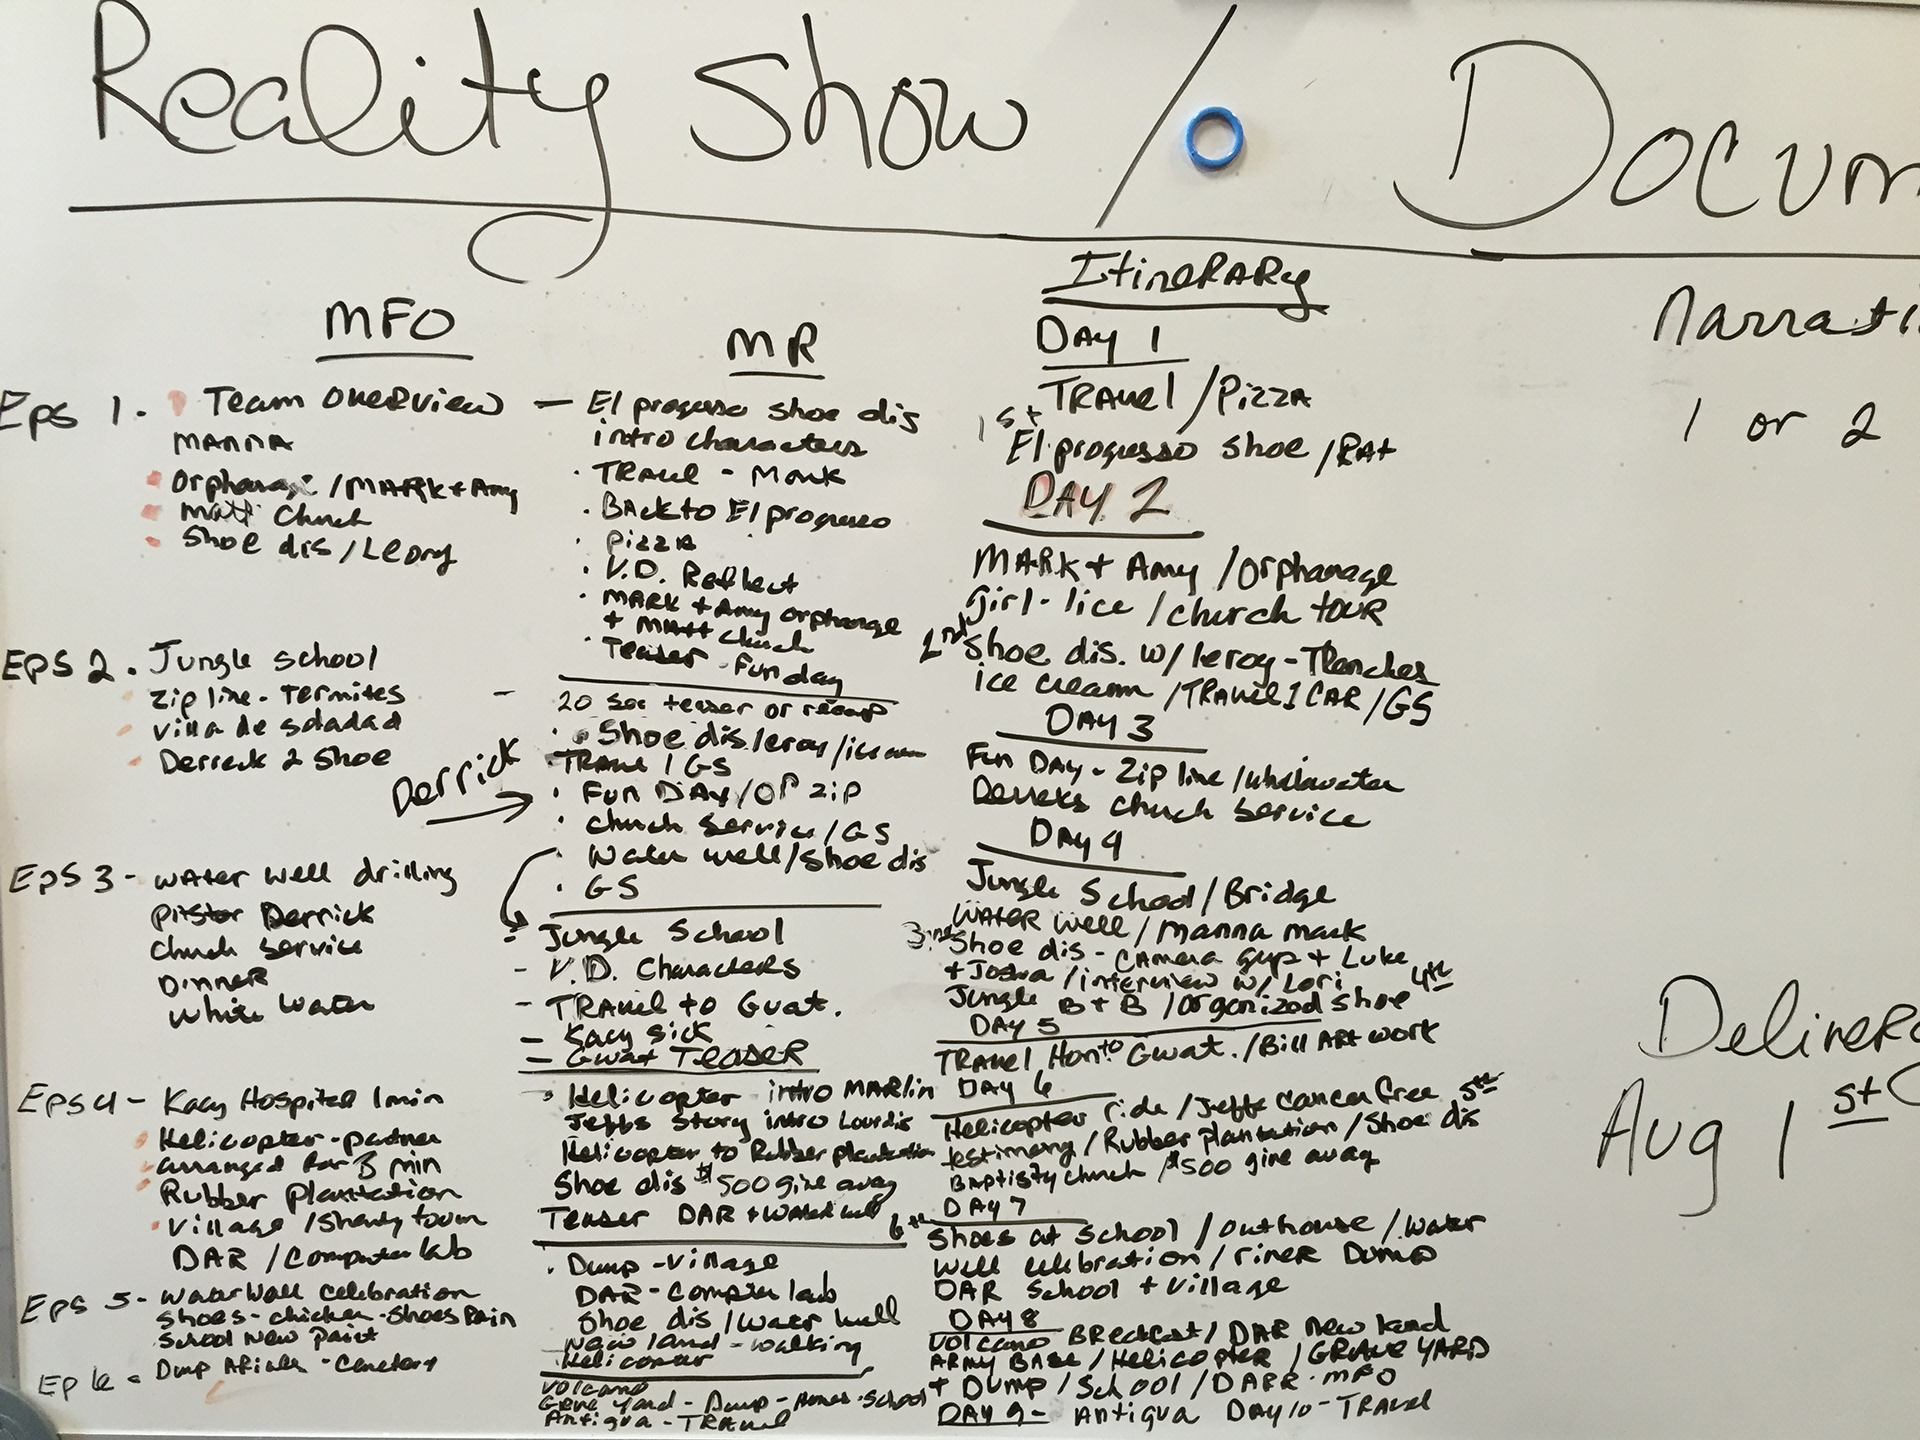 Reality Show / Docum
MFO
Eps 1. Team overview
MANNA
Orphanage / MARK + Amy
Matt Church
Shoe dis / Leory
Eps 2. Jungle school
Zip line - Termites
Villa de soladad
Derreck 2 Shoe
Derrick
Eps 3 - water well drilling
Derrick
Church service
Dinner
White water
Eps 4 - Kacy Hospital 1 min
Helicopter - partner
arranged for 3 min
Rubber plantation
Village / Shanty town
DAR / Computer lab
Eps 5 - Water Well celebration
Shoes - chicken - Shoes Rain
School New paint
Ep 6 - Dump - Cemetery
MR
El progesso shoe dis
intro characters
Travel - Monk
Back to El progresso
Pizza
V.D. Reflect
MARK + Amy orphange
+ Matt church
Teaser - Fun day
20 sec teaser or recap
Shoe dis / leroy /
Travel / GS
Fun DAY / OP zip
Church Service / GS
Water well / shoe dis
GS
Jungle School
- V.D. Characters
- TRAvel to Guat.
- Kacy sick
- Gwat TEASER
Helicopter intro MARlin
Jeffs Story intro Lourdis
Helicopter to Rubber plantation
Shoe dis $500 give away
Teaser DAR + Water well
Dump - Village
DAR - Computer lab
Shoe dis / water well
New land - walking
Helicopter
Volcano
Grave yard - Dump - - School
Antigua - TRAvel
Itinerary
DAY 1
TRAvel / Pizza
1st
El progresso shoe / RAt
DAY 2
MARK + Amy / Orphanage
Girl - lice / church tour
2nd Shoe dis. w/ leroy - Trenches
ice cream / TRAvel 1 CAR / GS
DAY 3
Fun DAY - Zip line / whitewater
Derreks Church Service
DAY 4
Jungle School / Bridge
Water well / Manna mark
Shoe dis - camera guys + Luke
+ Joshua / interview w/ Lori
Jungle B + B / organized shoe 4th
DAY 5
TRAvel Hon to Gwat. / Bill ARt work
DAY 6
Helicopter ride / Jeffs cancer free 5th
testimony / Rubber plantation / Shoe dis
Baptist church / $500 give away
DAY 7
6th Shoes at School / outhouse / water
well celibration / river Dump
DAR School + village
DAY 8
Volcano Breakfast / DAR new land
ARMY Base / Helicopter / GRAVE YARD
+ Dump / School / DARR - MFO
DAY 9 - Antigua DAY 10 - TRAvel
Narrati
1 or 2
Delivera
Aug 1st